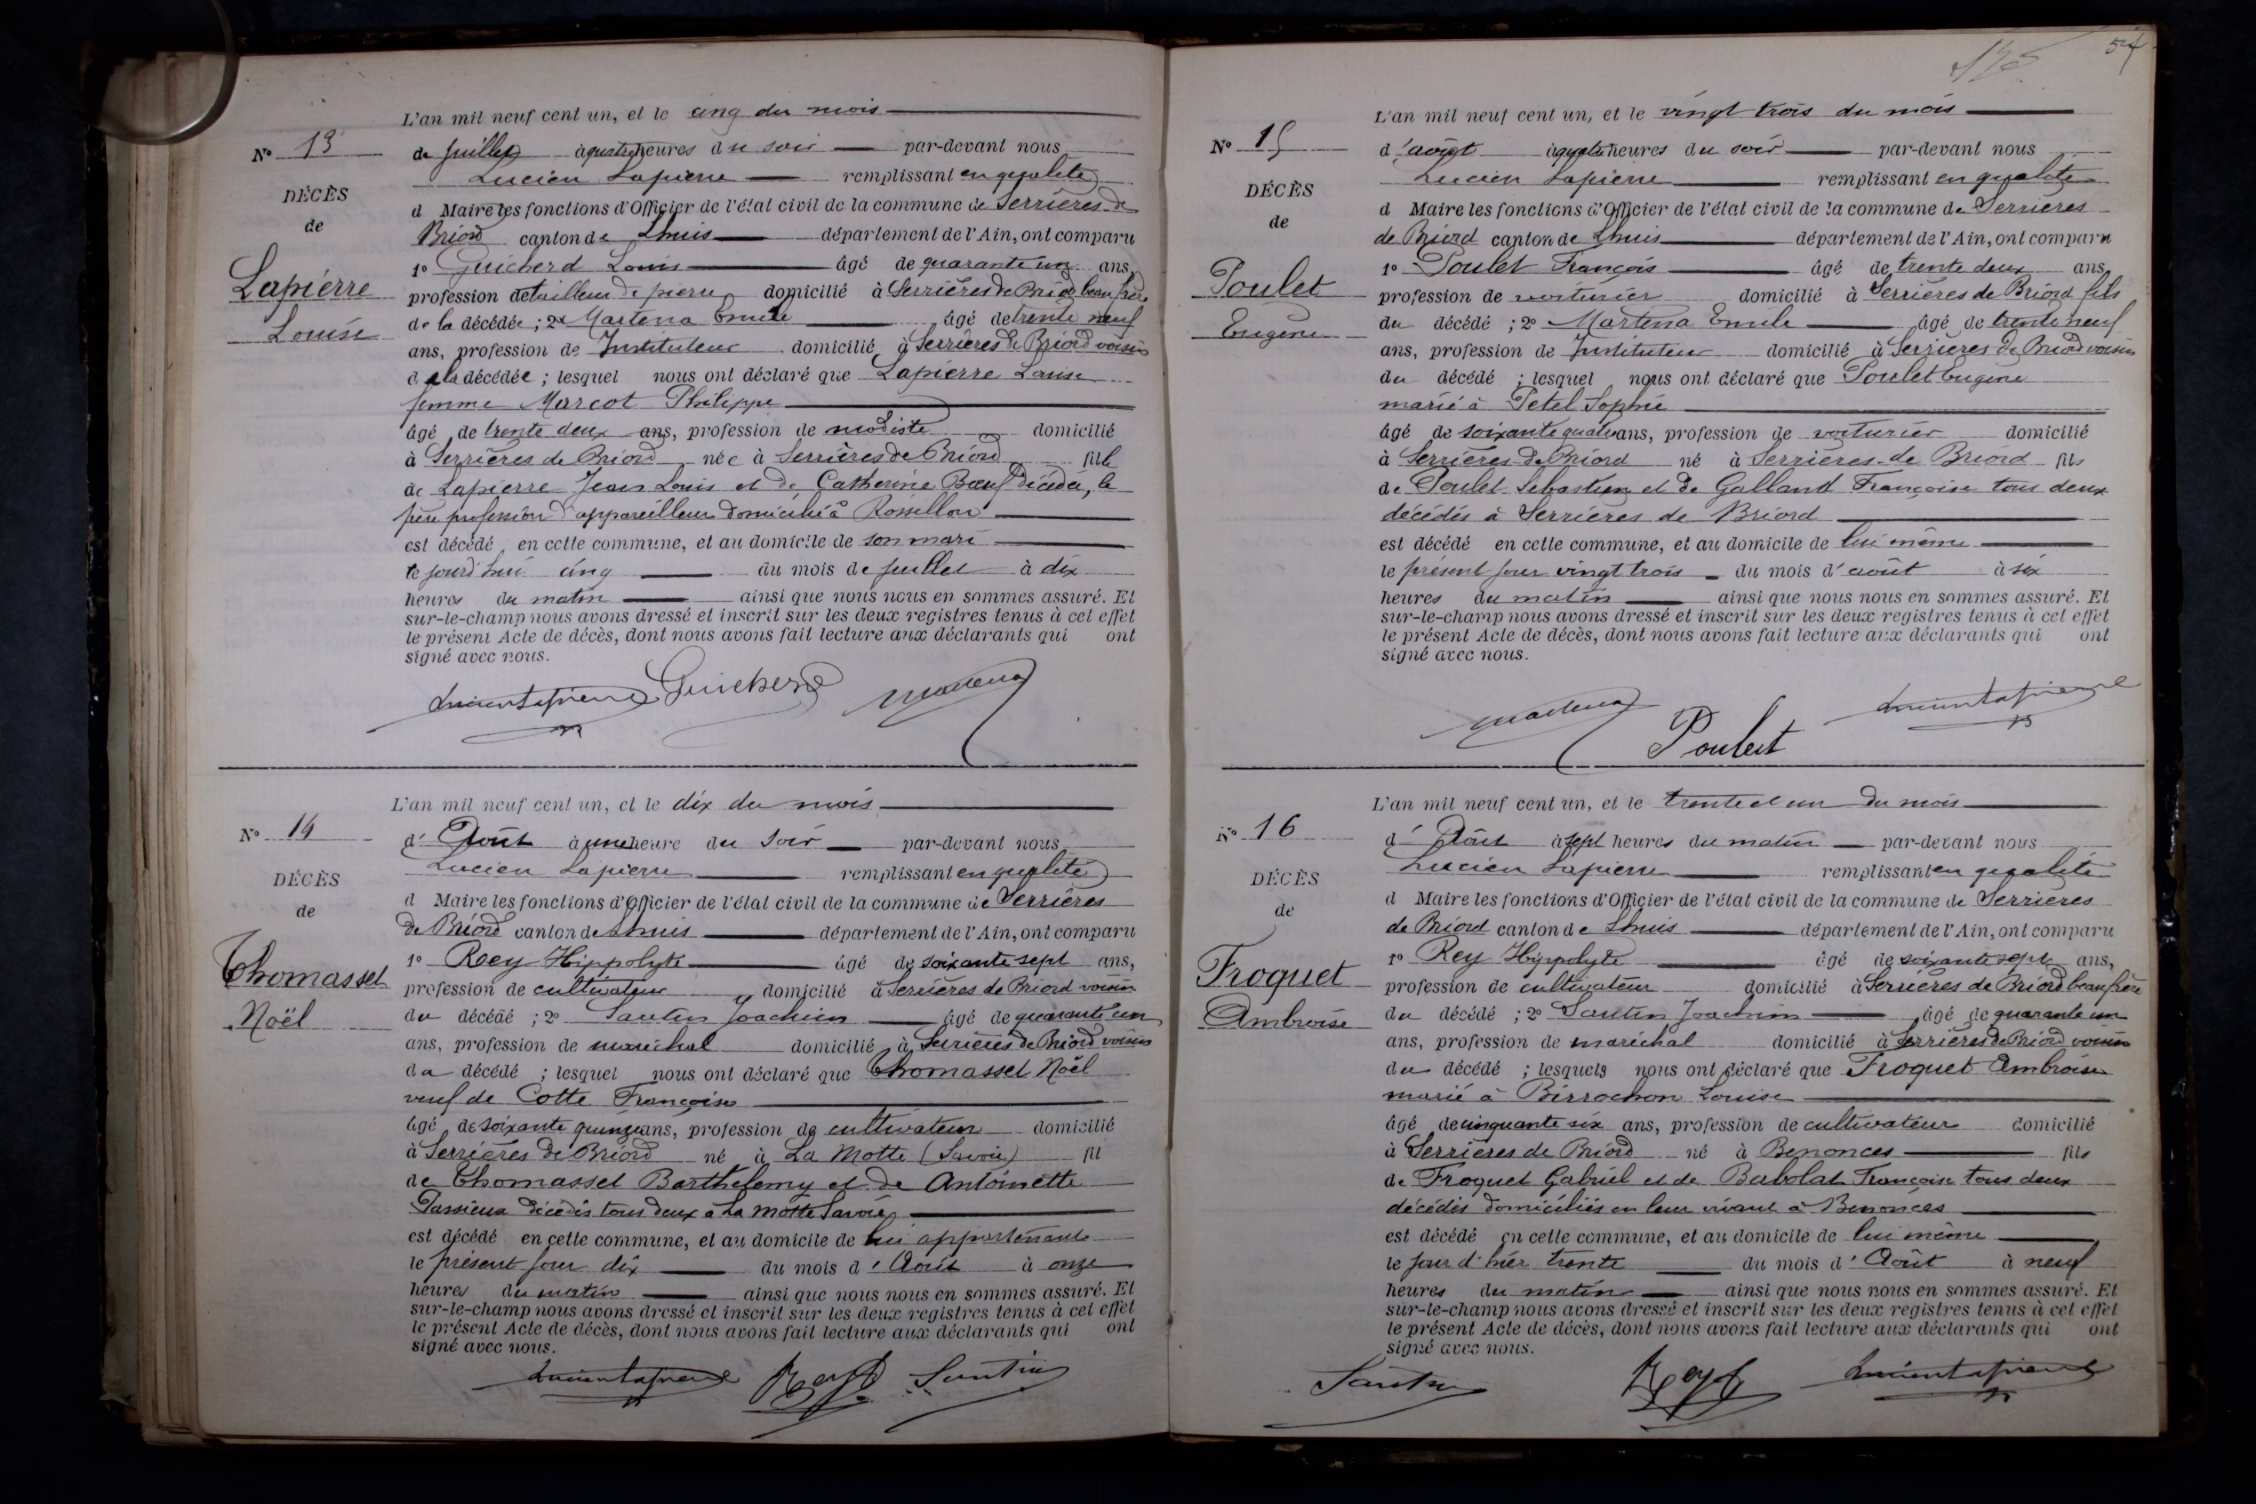 L'an mil neuf cent un, et le cinq du mois
N° 13
de Juillet à quatre heures du soir par-devant nous
Lucien Lapierre remplissant en qualité
DÉCÈS
d Maire les fonctions d'Officier de l'état civil de la commune de Serrières de
de
Briord canton de Lhuis département de l'Ain, ont comparu
1° Guicherd Louis âgé de quarante un ans,
Lapierre
profession de tailleur de pierre domicilié à Serrières de Briord beau frère
Louise
de la décédée ; 2° Martena Emile âgé de trente neuf
ans, profession de Instituteur domicilié à Serrières de Briord voisin
de la décédée ; lesquel nous ont déclaré que Lapierre Louise
femme Marcot Philippe
âgé de trente deux ans, profession de modiste domicilié
à Serrières de Briord née à Serrières de Briord fille
de Lapierre Jean Louis et de Catherine Bœuf décédée, le
père profession d'appareilleur domicilié à Rossillon
est décédé en cette commune, et au domicile de son mari
le jourd'hui cinq du mois de Juillet à dix
heures du matin ainsi que nous nous en sommes assuré. Et
sur-le-champ nous avons dressé et inscrit sur les deux registres tenus à cet effet
le présent Acte de décès, dont nous avons fait lecture aux déclarants qui ont
signé avec nous.
Lucien Lapierre Guicherd Martena
L'an mil neuf cent un, et le dix du mois
N° 14
d' Août à une heure du soir par-devant nous
Lucien Lapierre remplissant en qualité
DÉCÈS
d Maire les fonctions d'Officier de l'état civil de la commune de Serrières
de
de Briord canton de Lhuis département de l'Ain, ont comparu
1° Rey Hippolyte âgé de soixante sept ans,
Thomasset
profession de cultivateur domicilié à Serrières de Briord voisin
Noël
du décédé ; 2° Santin Joachim âgé de quarante un
ans, profession de maréchal domicilié à Serrières de Briord voisin
du décédé ; lesquel nous ont déclaré que Thomasset Noël
veuf de Cotte Françoise
âgé de soixante quinze ans, profession de cultivateur domicilié
à Serrières de Briord né à La Motte (Savoie) fil
de Thomasset Barthelemy et de Antoinette
Passieux décédés tous deux à La Motte Savoie
est décédé en cette commune, et au domicile de lui appartenant
le présent jour dix du mois d' Août à onze
heures du matin ainsi que nous nous en sommes assuré. Et
sur-le-champ nous avons dressé et inscrit sur les deux registres tenus à cet effet
le présent Acte de décès, dont nous avons fait lecture aux déclarants qui ont
signé avec nous.
Lucien Lapierre Rey Santin
54
L'an mil neuf cent un, et le vingt trois du mois
N° 15
d'août à quatre heures du soir par-devant nous
Lucien Lapierre remplissant en qualité
DÉCÈS
d Maire les fonctions d'Officier de l'état civil de la commune de Serrières
de
de Briord canton de Lhuis département de l'Ain, ont comparu
1° Poulet François âgé de trente deux ans,
Poulet
profession de voiturier domicilié à Serrières de Briord fils
Eugène
du décédé ; 2° Martena Emile âgé de trente neuf
ans, profession de Instituteur domicilié à Serrières de Briord voisin
du décédé ; lesquel nous ont déclaré que Poulet Eugène
marié à Petel Sophie
âgé de soixante quatre ans, profession de voiturier domicilié
à Serrières de Briord né à Serrières de Briord fils
de Poulet Sebastien et de Galland Françoise tous deux
décédés à Serrières de Briord
est décédé en cette commune, et au domicile de lui même
le présent jour vingt trois du mois d'août à six
heures du matin ainsi que nous nous en sommes assuré. Et
sur-le-champ nous avons dressé et inscrit sur les deux registres tenus à cet effet
le présent Acte de décès, dont nous avons fait lecture aux déclarants qui ont
signé avec nous.
Martena Poulet Lucien Lapierre
L'an mil neuf cent un, et le trente et un du mois
N° 16
d' Août à sept heures du matin par-devant nous
Lucien Lapierre remplissant en qualité
DÉCÈS
d Maire les fonctions d'Officier de l'état civil de la commune de Serrières
de
de Briord canton de Lhuis département de l'Ain, ont comparu
1° Rey Hippolyte âgé de soixante sept ans,
Froquet
profession de cultivateur domicilié à Serrières de Briord beau frère
Ambroise
du décédé ; 2° Santin Joachim âgé de quarante un
ans, profession de maréchal domicilié à Serrières de Briord voisin
du décédé ; lesquels nous ont déclaré que Froquet Ambroise
marié à Birrochon Louise
âgé de cinquante six ans, profession de cultivateur domicilié
à Serrières de Briord né à Benonces fils
de Froquet Gabriel et de Babolat Françoise tous deux
décédés domiciliés en leur vivant à Benonces
est décédé en cette commune, et au domicile de lui même
le jour d'hier trente du mois d' Août à neuf
heures du matin ainsi que nous nous en sommes assuré. Et
sur-le-champ nous avons dressé et inscrit sur les deux registres tenus à cet effet
le présent Acte de décès, dont nous avons fait lecture aux déclarants qui ont
signé avec nous.
Santin Rey Lucien Lapierre